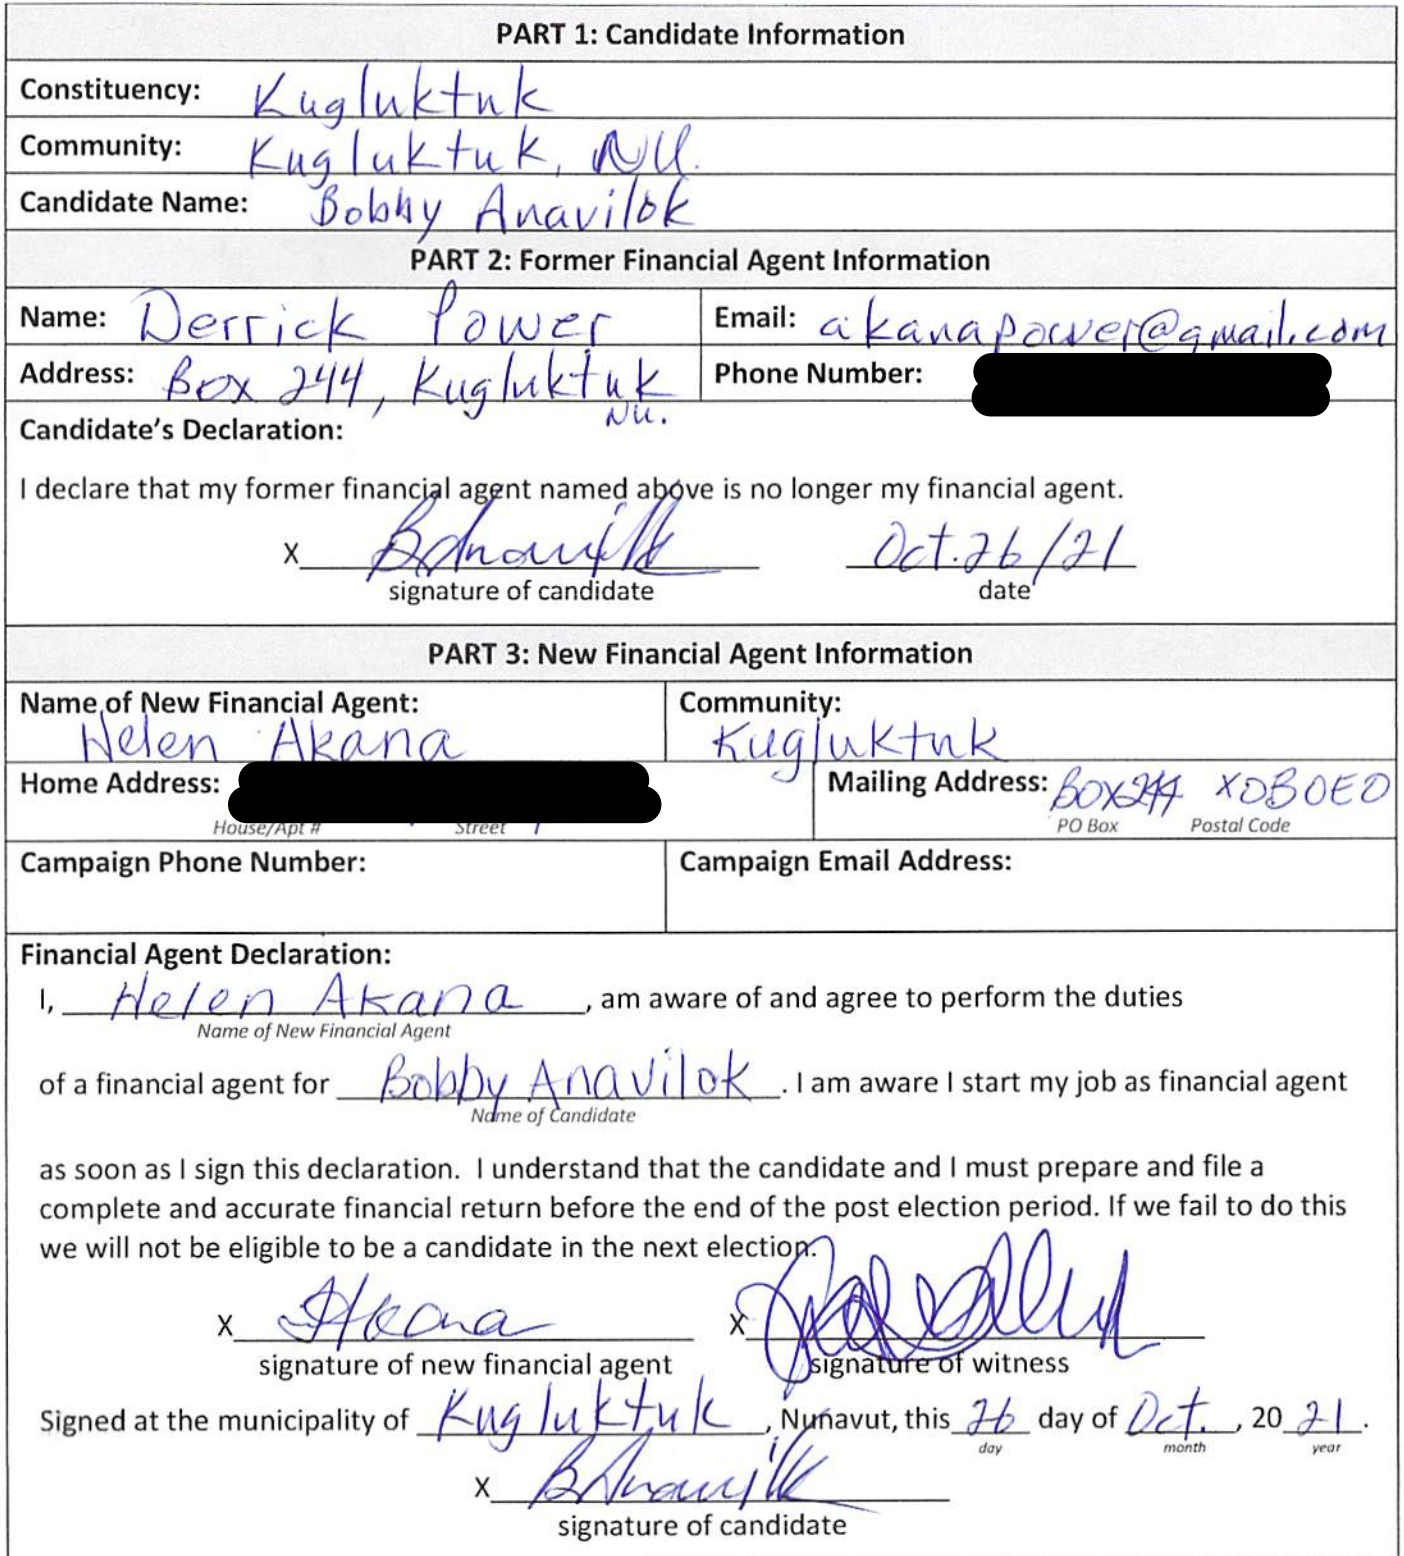 PART 1: Candidate Information
Constituency: Kugluktuk
Community: Kugluktuk, NU.
Candidate Name: Bobby Anavilok
PART 2: Former Financial Agent Information
Name: Derrick Power Email: akanapower@gmail.com
Address: Box 244, Kugluktuk Phone Number:
NU.
Candidate's Declaration:
I declare that my former financial agent named above is no longer my financial agent.
X BAnavilok Oct. 26/21
signature of candidate date
PART 3: New Financial Agent Information
Name of New Financial Agent: Community:
Helen Akana Kugluktuk
Home Address: Mailing Address: BOX 244 X0B0E0
House/Apt # Street PO Box Postal Code
Campaign Phone Number: Campaign Email Address:
Financial Agent Declaration:
I, Helen Akana, am aware of and agree to perform the duties
Name of New Financial Agent
of a financial agent for Bobby Anavilok. I am aware I start my job as financial agent
Name of Candidate
as soon as I sign this declaration. I understand that the candidate and I must prepare and file a
complete and accurate financial return before the end of the post election period. If we fail to do this
we will not be eligible to be a candidate in the next election.
X HAkana X
signature of new financial agent signature of witness
Signed at the municipality of Kugluktuk, Nunavut, this 26 day of Oct., 20 21.
day month year
X BAnavilok
signature of candidate